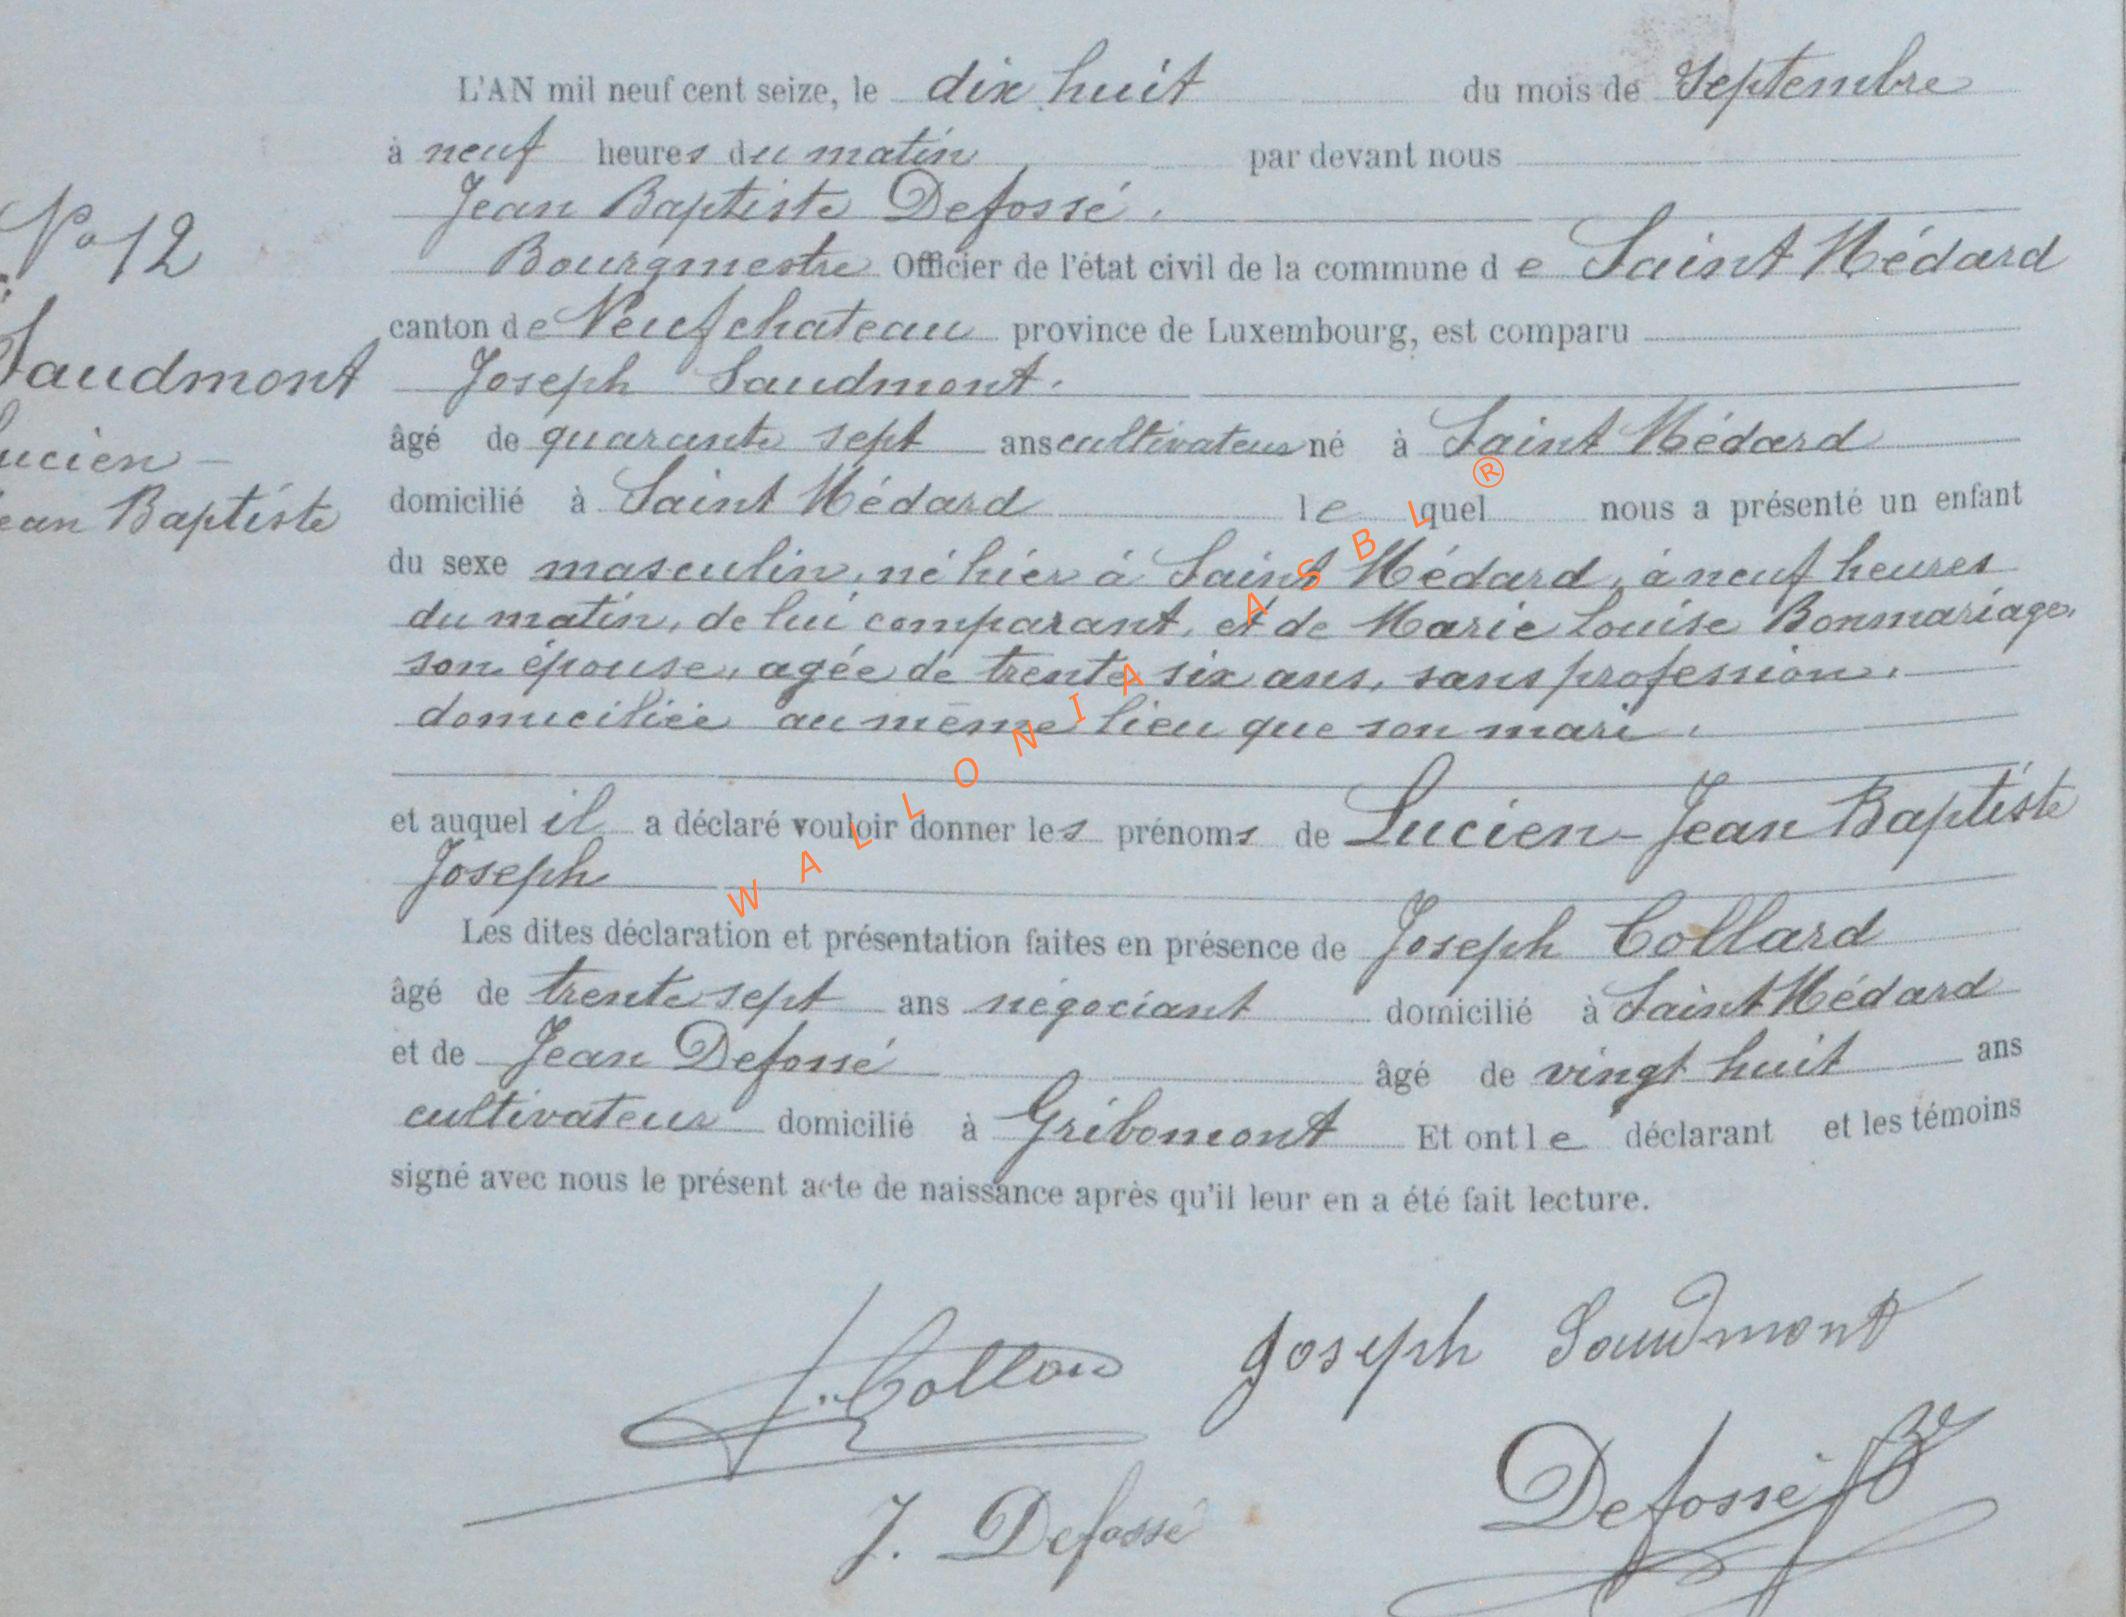 L'AN mil neuf cent seize, le dix huit du mois de Septembre
à neuf heures du matin par devant nous
Jean Baptiste Defossé.
Bourgmestre Officier de l'état civil de la commune de Saint Médard
canton de Neufchateau province de Luxembourg, est comparu
Joseph Saudmont.
âgé de quarante sept ans cultivateur né à Saint Médard
domicilié à Saint Médard lequel nous a présenté un enfant
du sexe masculin, né hier à Saint Médard, à neuf heures
du matin, de lui comparant, et de Marie Louise Bonmariage,
son épouse, agée de trente six ans, sans profession,
domiciliée au même lieu que son mari.
et auquel il a déclaré vouloir donner les prénoms de Lucien-Jean Baptiste
Joseph
Les dites déclaration et présentation faites en présence de Joseph Collard
âgé de trente sept ans négociant domicilié à Saint Médard
et de Jean Defossé âgé de vingt huit ans
cultivateur domicilié à Gribomont Et ont le déclarant et les témoins
signé avec nous le présent acte de naissance après qu'il leur en a été fait lecture.
No 12
Saudmont
Lucien-
Jean Baptiste
J. Collard
Joseph Saudmont
J. Defossé
Defossé JB
WALLONIA ASBL®